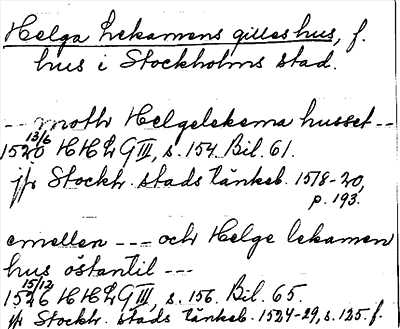 Helga Lekamens gilleshus, f.
hus i Stockholms stad.
--- moth Helgelekema husset --
13/6
1520 HHL G III, s. 154. Bil. 61.
jfr Stockh. stads tänkeb. 1518-20,
p. 193.
emellen --- och Helge lekamen
hus östantil ---
15/12
1526 HHL G III, s. 156. Bil. 65.
jfr Stockh. stads tänkeb. 1524-29, s. 125. f.